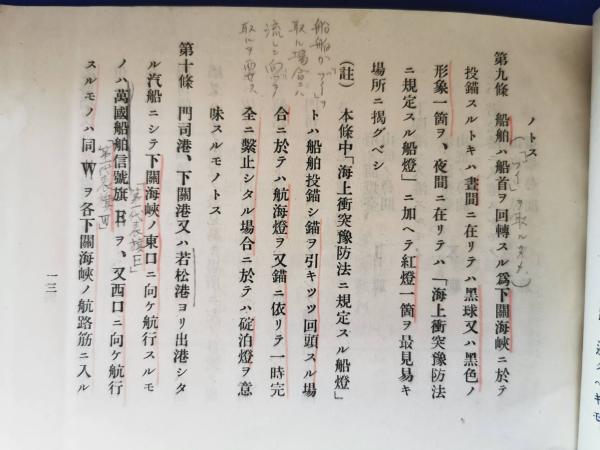 ノトス
第九條 船舶ハ船首ヲ回轉スル爲下關海峽ニ於テ
投錨スルトキハ晝間ニ在リテハ黑球又ハ黑色ノ
形象一箇ヲ、夜間ニ在リテハ「海上衝突豫防法
ニ規定スル船燈」ニ加ヘテ紅燈一箇ヲ最見易キ
場所ニ揭グベシ
(註) 本條中「海上衝突豫防法ニ規定スル船燈」
トハ船舶投錨シ錨ヲ引キツツ回頭スル場
合ニ於テハ航海燈ヲ又錨ニ依リテ一時完
全ニ繫止シタル場合ニ於テハ碇泊燈ヲ意
味スルモノトス
第十條 門司港、下關港又ハ若松港ヨリ出港シタ
ル汽船ニシテ下關海峽ノ東口ニ向ケ航行スルモ
ノハ萬國船舶信號旗Eヲ、又西口ニ向ケ航行
スルモノハ同Wヲ各下關海峽ノ航路筋ニ入ル
一三